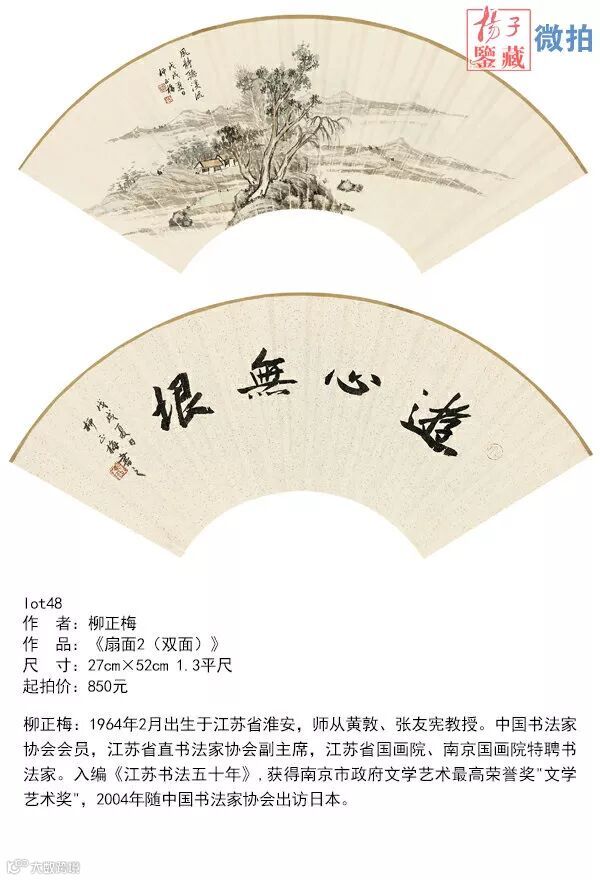 揚子
鑒藏
微拍
風静聽溪流
戊戌夏日
柳正梅
澄心無垠
戊戌夏日
柳正梅書之
lot48
作 者：柳正梅
作 品：《扇面2（双面）》
尺 寸：27cm×52cm 1.3平尺
起拍价：850元
柳正梅：1964年2月出生于江苏省淮安，师从黄敦、张友宪教授。中国书法家
协会会员，江苏省直书法家协会副主席，江苏省国画院、南京国画院特聘书
法家。入编《江苏书法五十年》，获得南京市政府文学艺术最高荣誉奖"文学
艺术奖"，2004年随中国书法家协会出访日本。
大数跨境